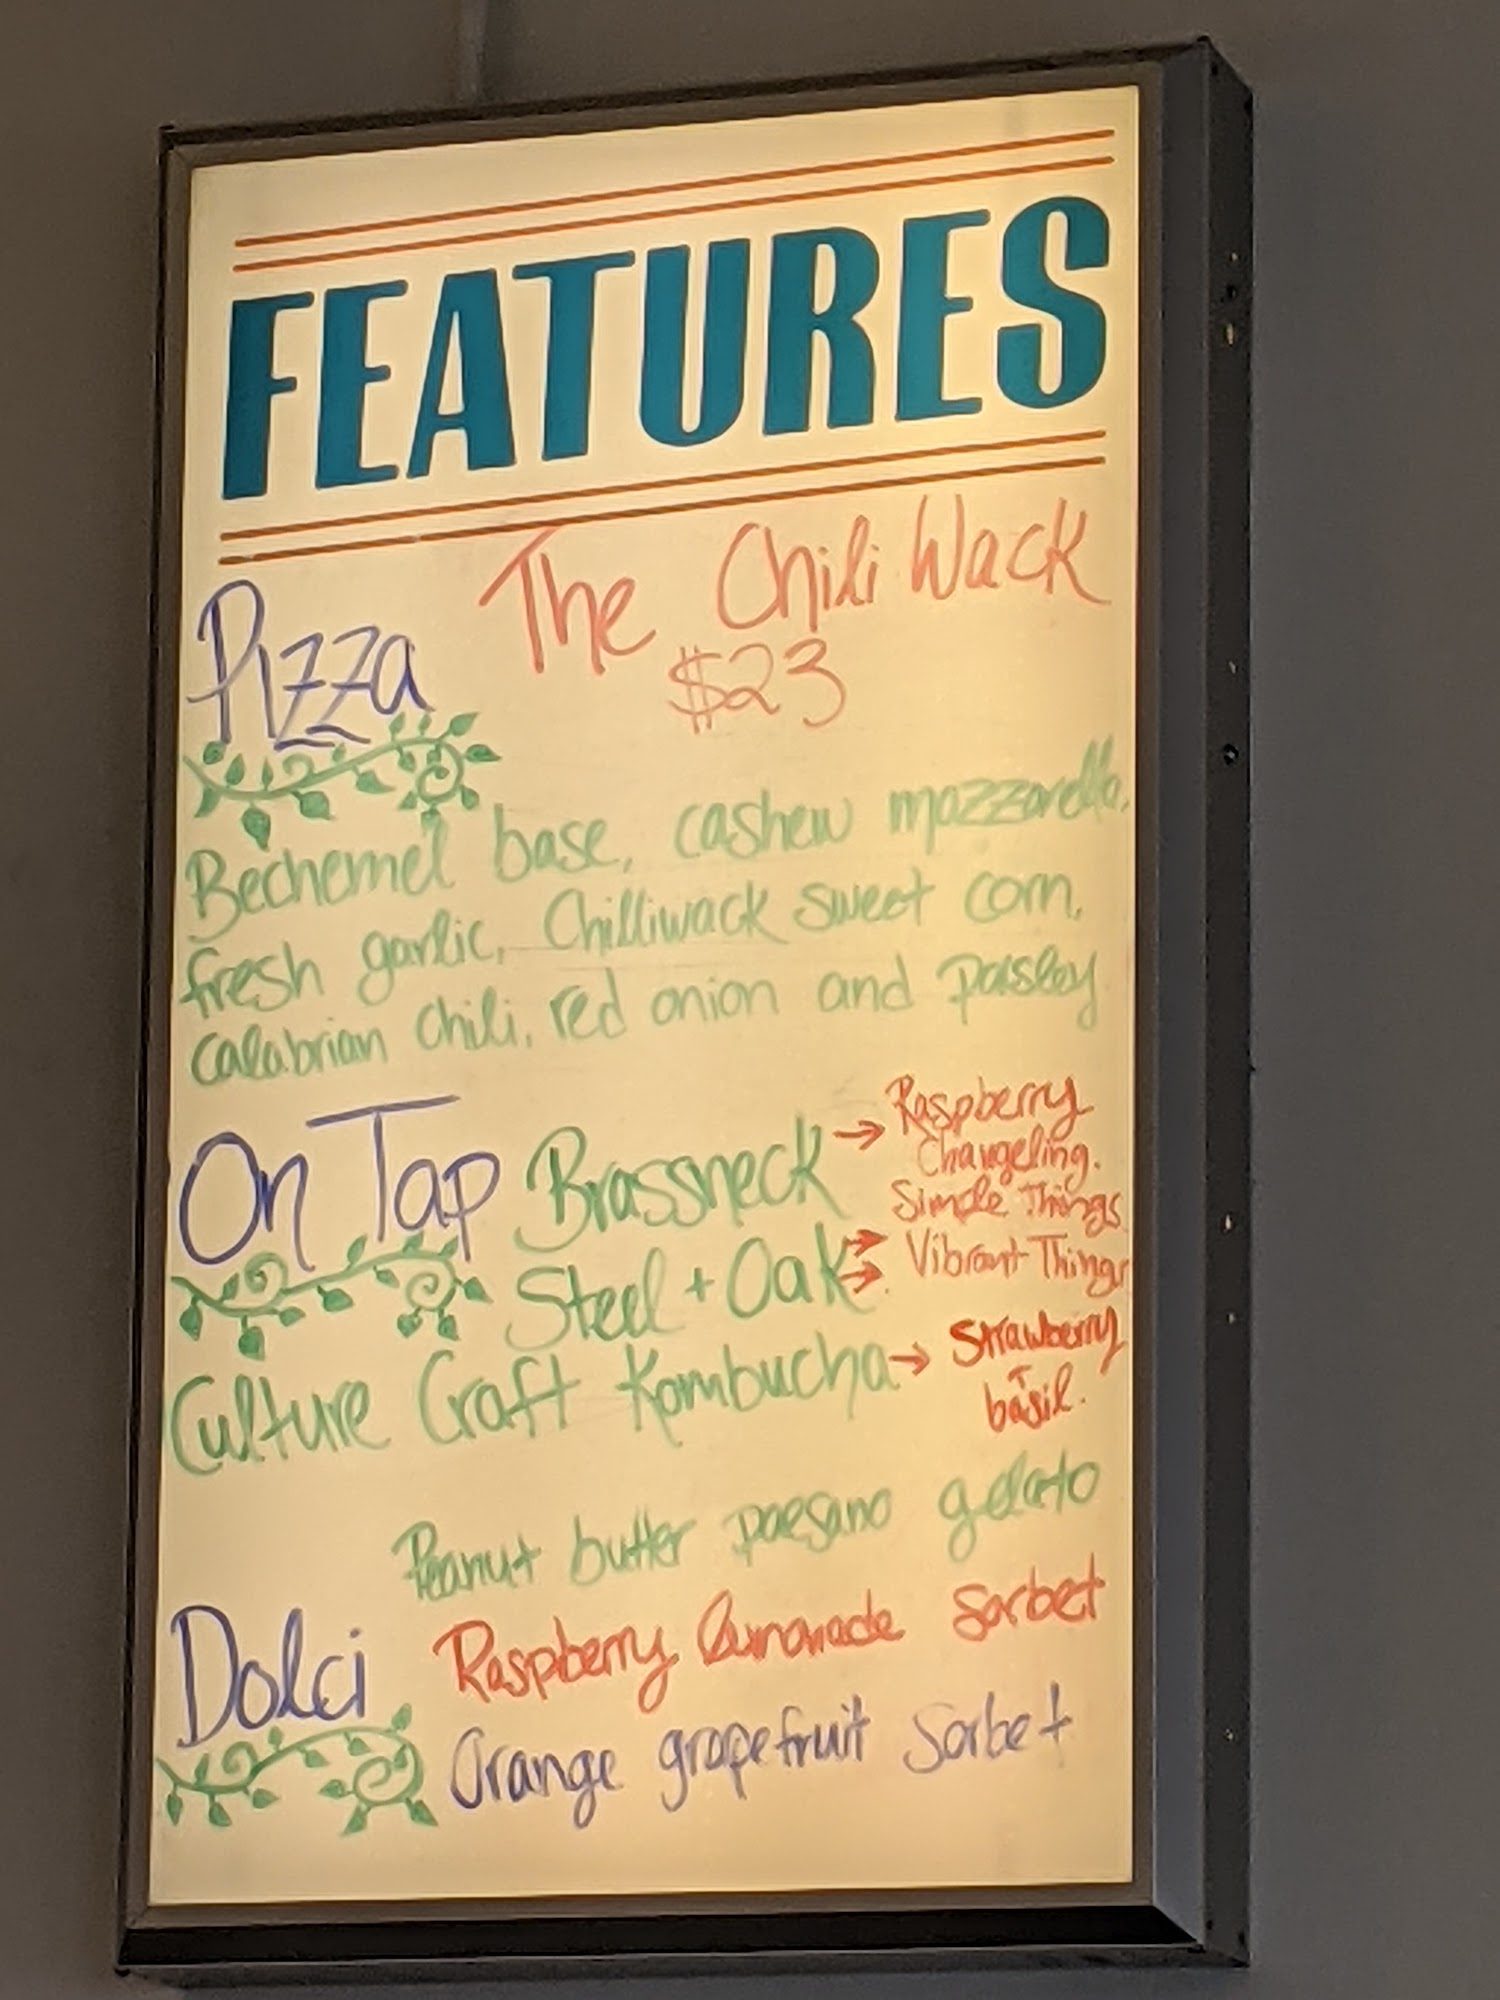 FEATURES
Pizza The Chili Wack
$23
Bechemel base, cashew mozzarella,
fresh garlic, Chilliwack sweet corn,
calabrian chili, red onion and parsley
On Tap Brassneck → Raspberry
Changeling.
Simple Things
Steel + Oak → Vibrant Things
Culture Craft Kombucha → Strawberry
basil.
Peanut butter paesano gelato
Dolci Raspberry lemonade sorbet
Orange grapefruit sorbet